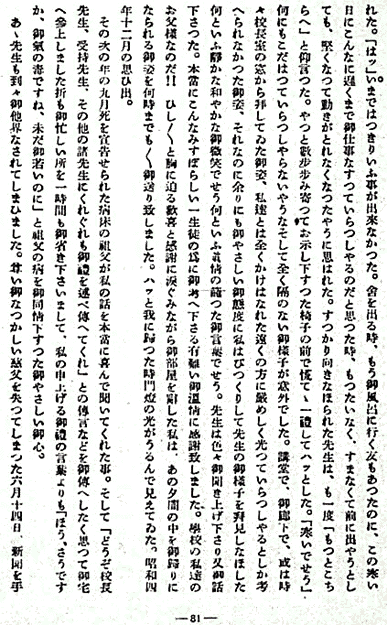 れた。「はッ」。まではつきりいふ事が出來なかつた。舍を出る時、もう御風呂に行く友もあつたのに、この寒い
日にこんなに遲くまで御仕事なすつていらつしやるのだと思つた時、もつたいなく、すまなくて前に出やうとし
ても、堅くなつて動きがとれなくなつたやうに思はれた。すつかり向きなほられた先生は、も一度「もつとこち
らへ」と仰言つた。やつと數步步み寄つてお示し下すつた椅子の前で慄て〻一禮してハッとした。「寒いでせう」
何にもこだはつていらつしやらないやうなそして全く隔のない御樣子が意外でした。講堂で、御廊下で、或は時
々校長室の窓から拜してゐた御姿、私達とは全くかけはなれた遠くの方に嚴めしく光つていらつしやるとしか考
へられなかつた御姿、それなのに余りにも御やさしい御態度に私はびつくりして先生の御樣子を拜見しなほした
何といふ靜かな和やかな御微笑でせう何といふ眞情の籠つた御言葉でせう。先生は色々御聞き上げ下さり又御話
下さつた。本當にこんなみすぼらしい一生徒の爲に御考へ下さる有難い御溫情に感謝致しました。學校の私達の
お父樣なのだ!!ひし〱と胸に迫る歡喜と感謝に淚ぐみながら御部屋を辭した私は、あの夕闇の中を御歸りに
なられる御姿を何時までも〱御送り致しました。ハッと我に歸つた時門燈の光がうるんで見えてゐた。昭和四
年十二月の思ひ出。
その次の年の九月死を宣告せられた病床の祖父が私の話を本當に喜んで聞いてくれた事。そして「どうぞ校長
先生、受持先生、その他の諸先生にくれぐれも御禮を述べ傳へてくれ」との傳言などを御傳へしたく思つて御宅
へ參上しました折も御忙しい所を一時間も御省き下さいまして、私の申上げる御禮の言葉よりも「ほう、さうです
か、御氣の毒ですね、未だ御若いのに」と祖父の病を御同情下すつた御やさしい御心。
あ〻先生も到々御他界なされてしまひました。尊い御なつかしい慈父を失つてしまつた六月十四日 新聞を手
—81—